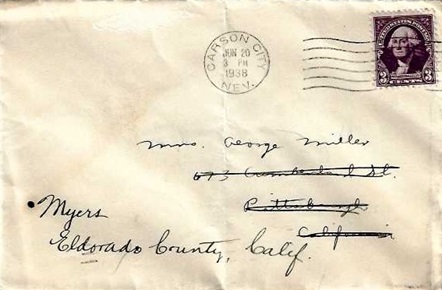 CARSON CITY
JUN 20
3 PM
1938
NEV.
UNITED STATES POSTAGE
3 3
Mrs. George Miller
673 Cumberland St.
Pittsburgh
California
Myers
Eldorado County, Calif.